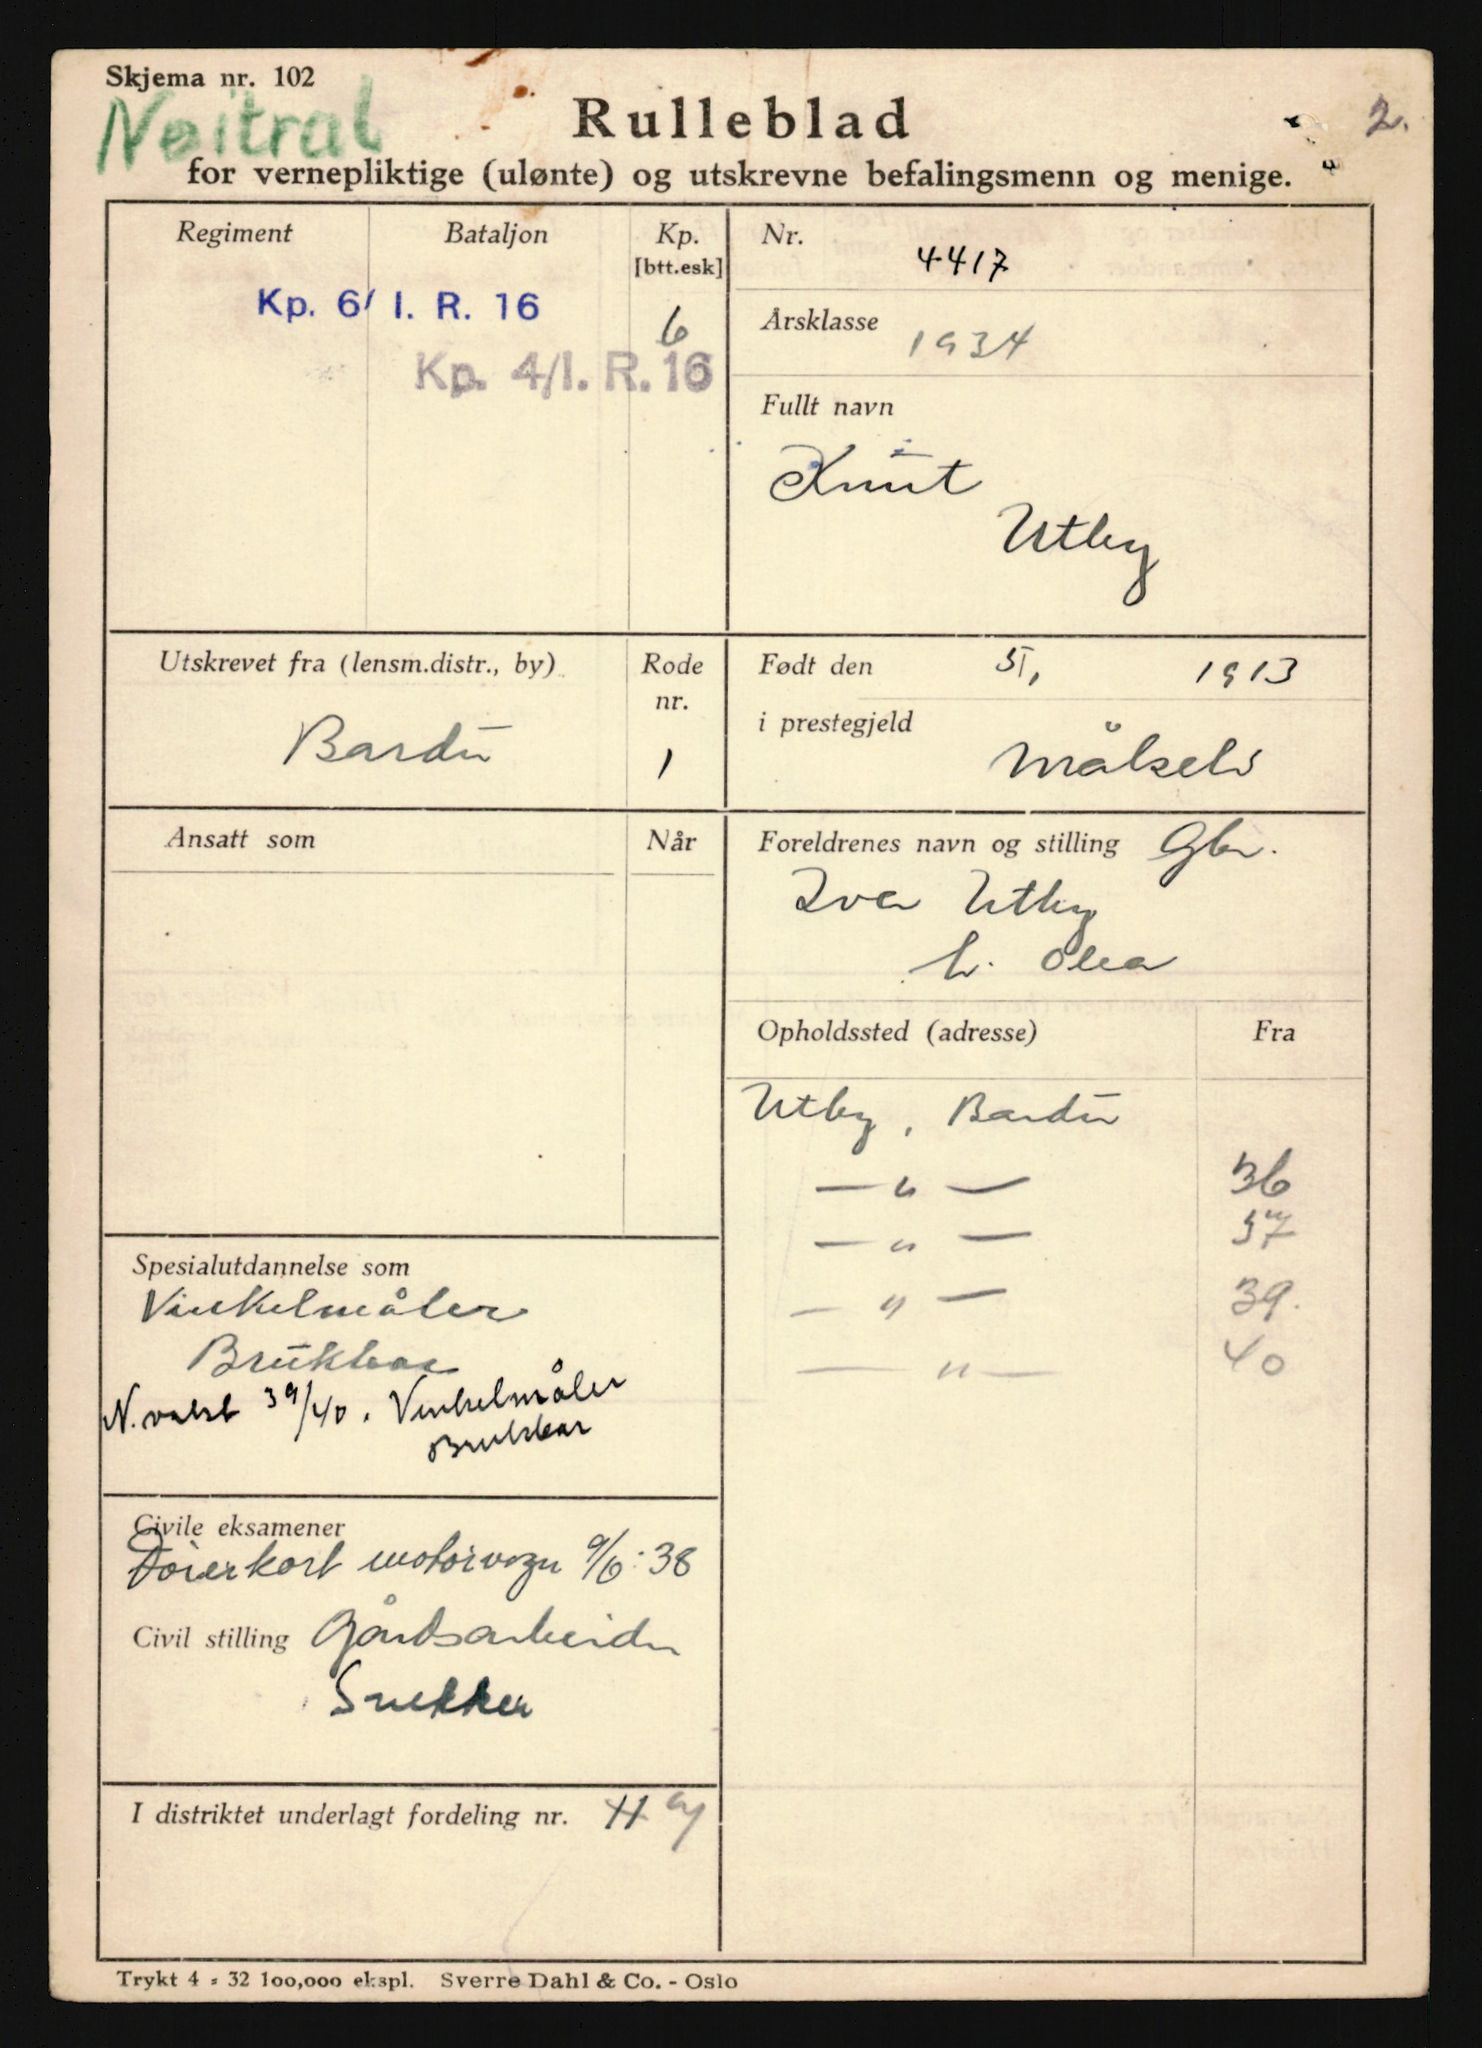 Skjema nr. 102
Nøitral
Rulleblad
2.
for vernepliktige (ulønte) og utskrevne befalingsmenn og menige.
Regiment
Bataljon
Kp.
[btt.esk]
Kp. 6/ I. R. 16
6
Kp. 4/I. R. 16
Nr.
4417
Årsklasse
1934
Fullt navn
Knut
Utby
Utskrevet fra (lensm.distr., by)
Bardu
Rode
nr.
1
Født den
1913
i prestegjeld
Målselv
Ansatt som
Når
Foreldrenes navn og stilling Gbr.
Iver Utby
h. Olea
Opholdssted (adresse)
Fra
Utby, Bardu
— " — 36
— " — 37
— " — 39.
— " — 40
Spesialutdannelse som
Vinkelmåler
Brukbar
N. vakt 39/40. Vinkelmåler
Brukbar
Civile eksamener
Førerkort motorvogn 9/6.38
Civil stilling Gårdsarbeider
Snekker
I distriktet underlagt fordeling nr. 
Trykt 4 - 32 100,000 ekspl. Sverre Dahl & Co. - Oslo